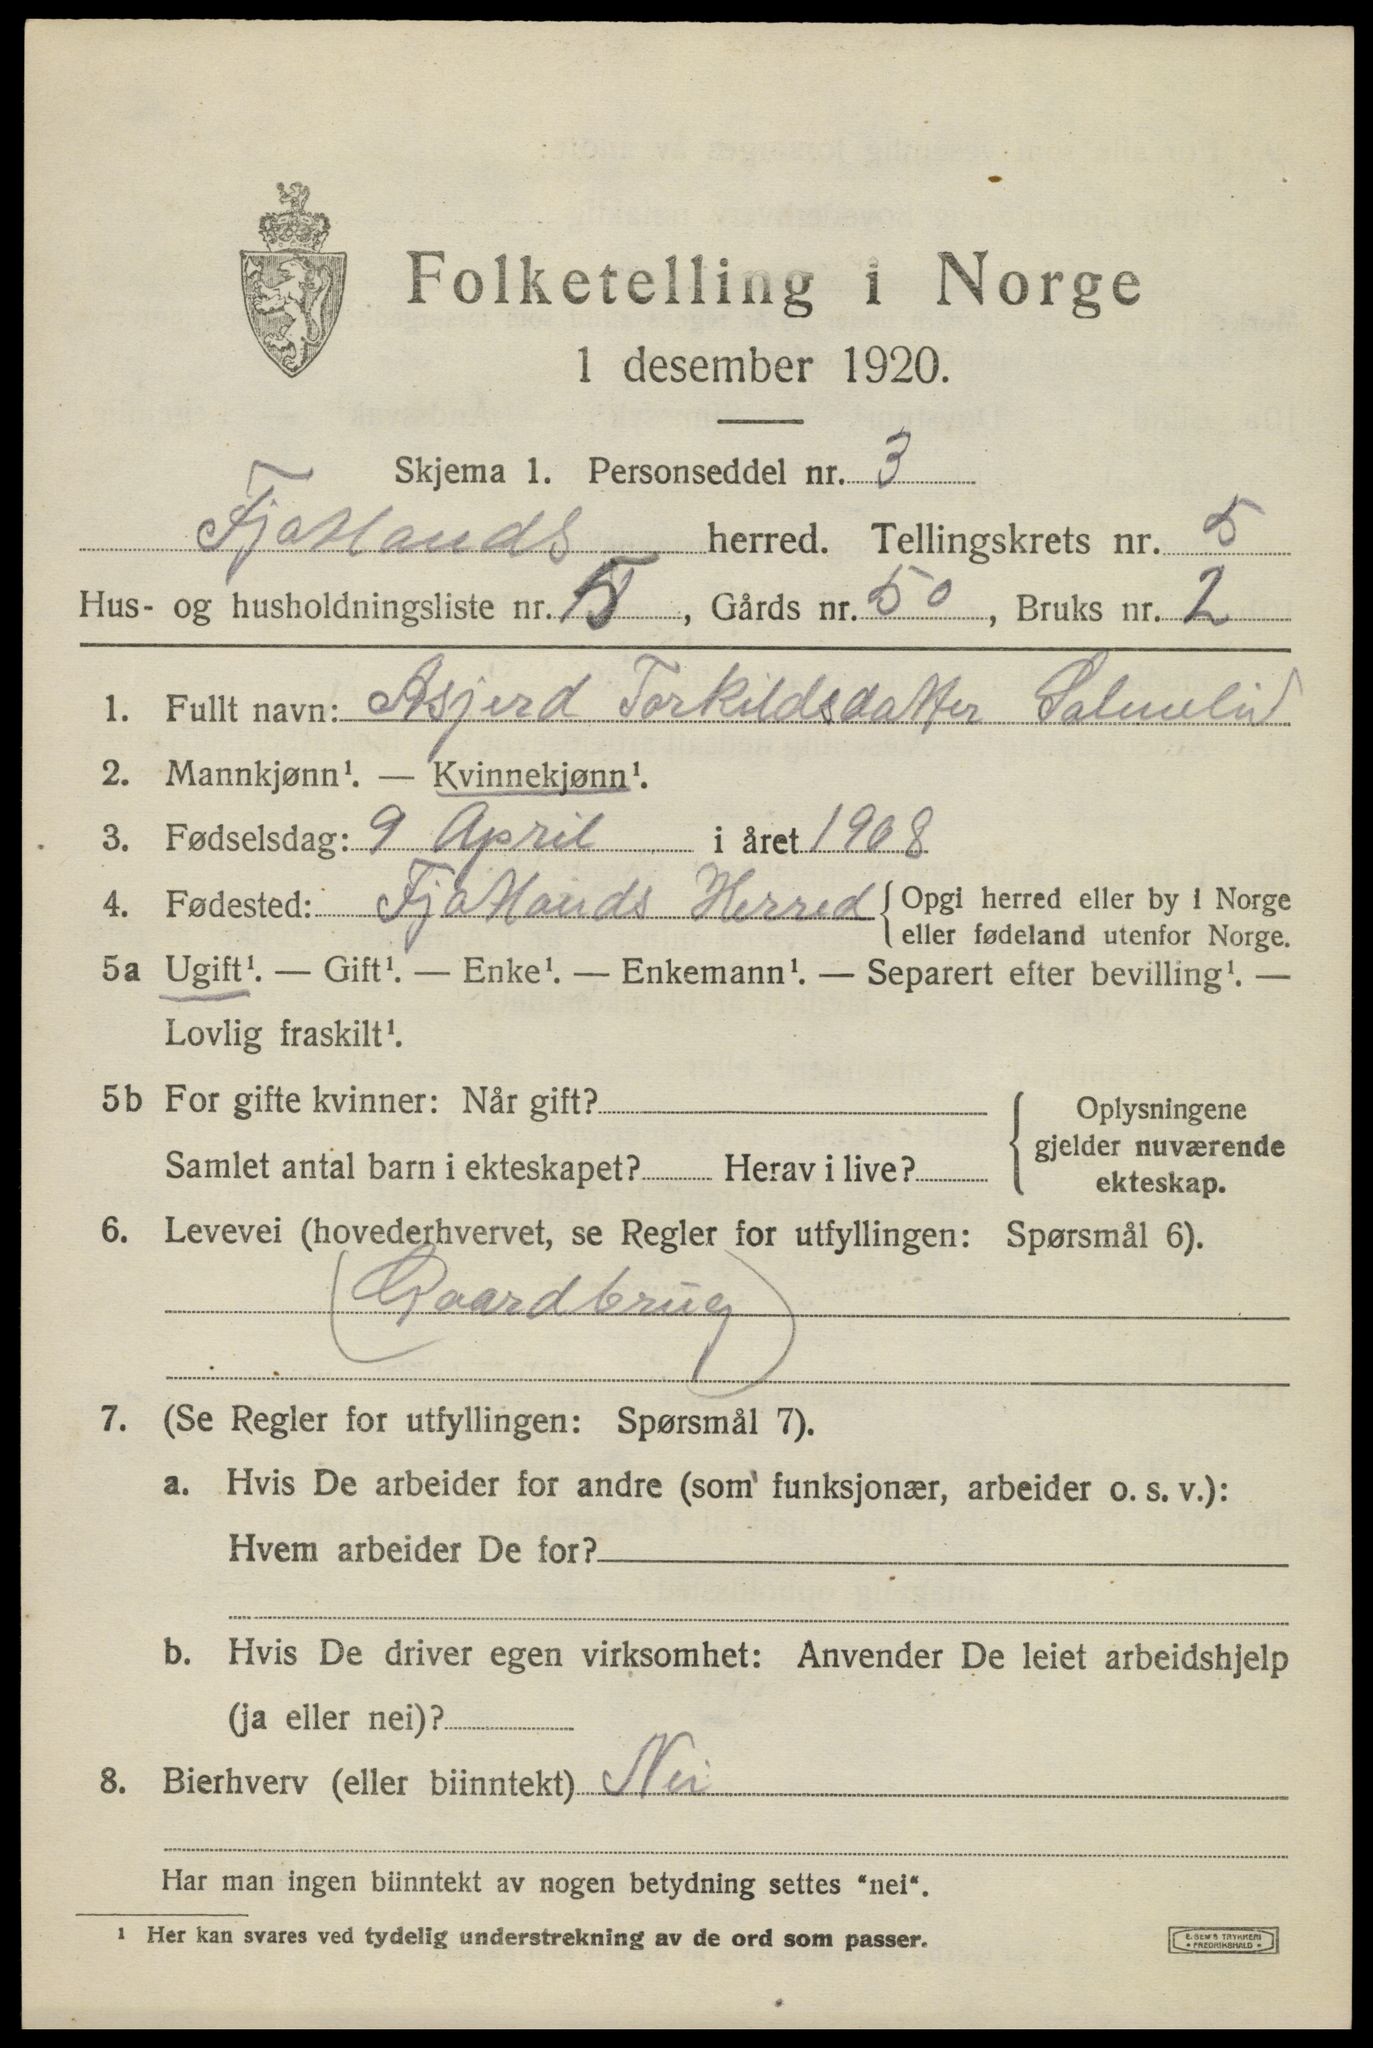 Folketelling i Norge
1 desember 1920.
Skjema 1. Personseddel nr. 3
Fjotlands herred. Tellingskrets nr. 5
Hus- og husholdningsliste nr. 5, Gårds nr. 50, Bruks nr. 2
1. Fullt navn: Asjerd Torkildsdatter Salmelid
2. Mannkjønn¹. — Kvinnekjønn¹.
3. Fødselsdag: 9 April i året 1908
4. Fødested: Fjotlands Herred { Opgi herred eller by i Norge
eller fødeland utenfor Norge.
5a Ugift¹. — Gift¹. — Enke¹. — Enkemann¹. — Separert efter bevilling¹. —
Lovlig fraskilt¹.
5b For gifte kvinner: Når gift?
Samlet antal barn i ekteskapet? Herav i live?
{ Oplysningene
gjelder nuværende
ekteskap.
6. Levevei (hovederhvervet, se Regler for utfyllingen: Spørsmål 6).
(Gaardbrug)
7. (Se Regler for utfyllingen: Spørsmål 7).
a. Hvis De arbeider for andre (som funksjonær, arbeider o. s. v.):
Hvem arbeider De for?
b. Hvis De driver egen virksomhet: Anvender De leiet arbeidshjelp
(ja eller nei)?
8. Bierhverv (eller biinntekt) Nei
Har man ingen biinntekt av nogen betydning settes "nei".
¹ Her kan svares ved tydelig understrekning av de ord som passer.
E. SEM'S TRYKKERI
• FREDRIKSHALD •